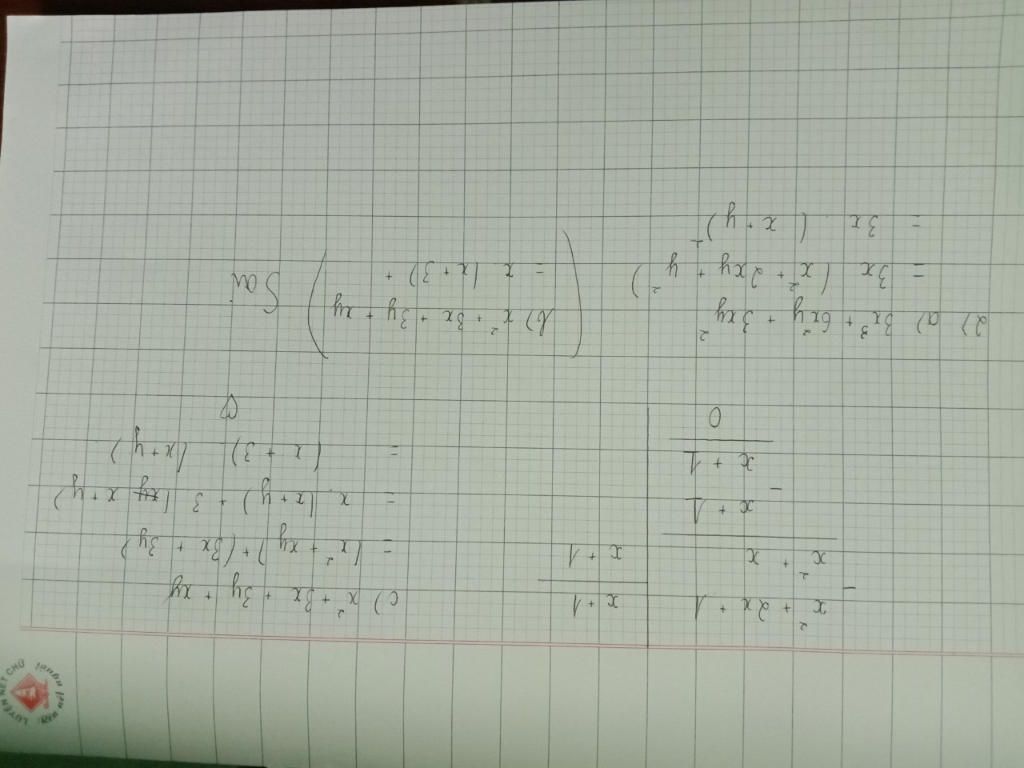 x² + 2x + 1 | x + 1
- x² + x | x + 1
x + 1
- x + 1
0
c) x² + 3x + 3y + xy
= (x² + xy) + (3x + 3y)
= x. (x + y) + 3 (x + y)
= (x + 3) (x + y)
2) a) 3x³ + 6x²y + 3xy²
= 3x (x² + 2xy + y²)
= 3x. (x + y)²
b) x² + 3x + 3y + xy
= x (x + 3) +
Sai
LUYỆN NÉT CHỮ